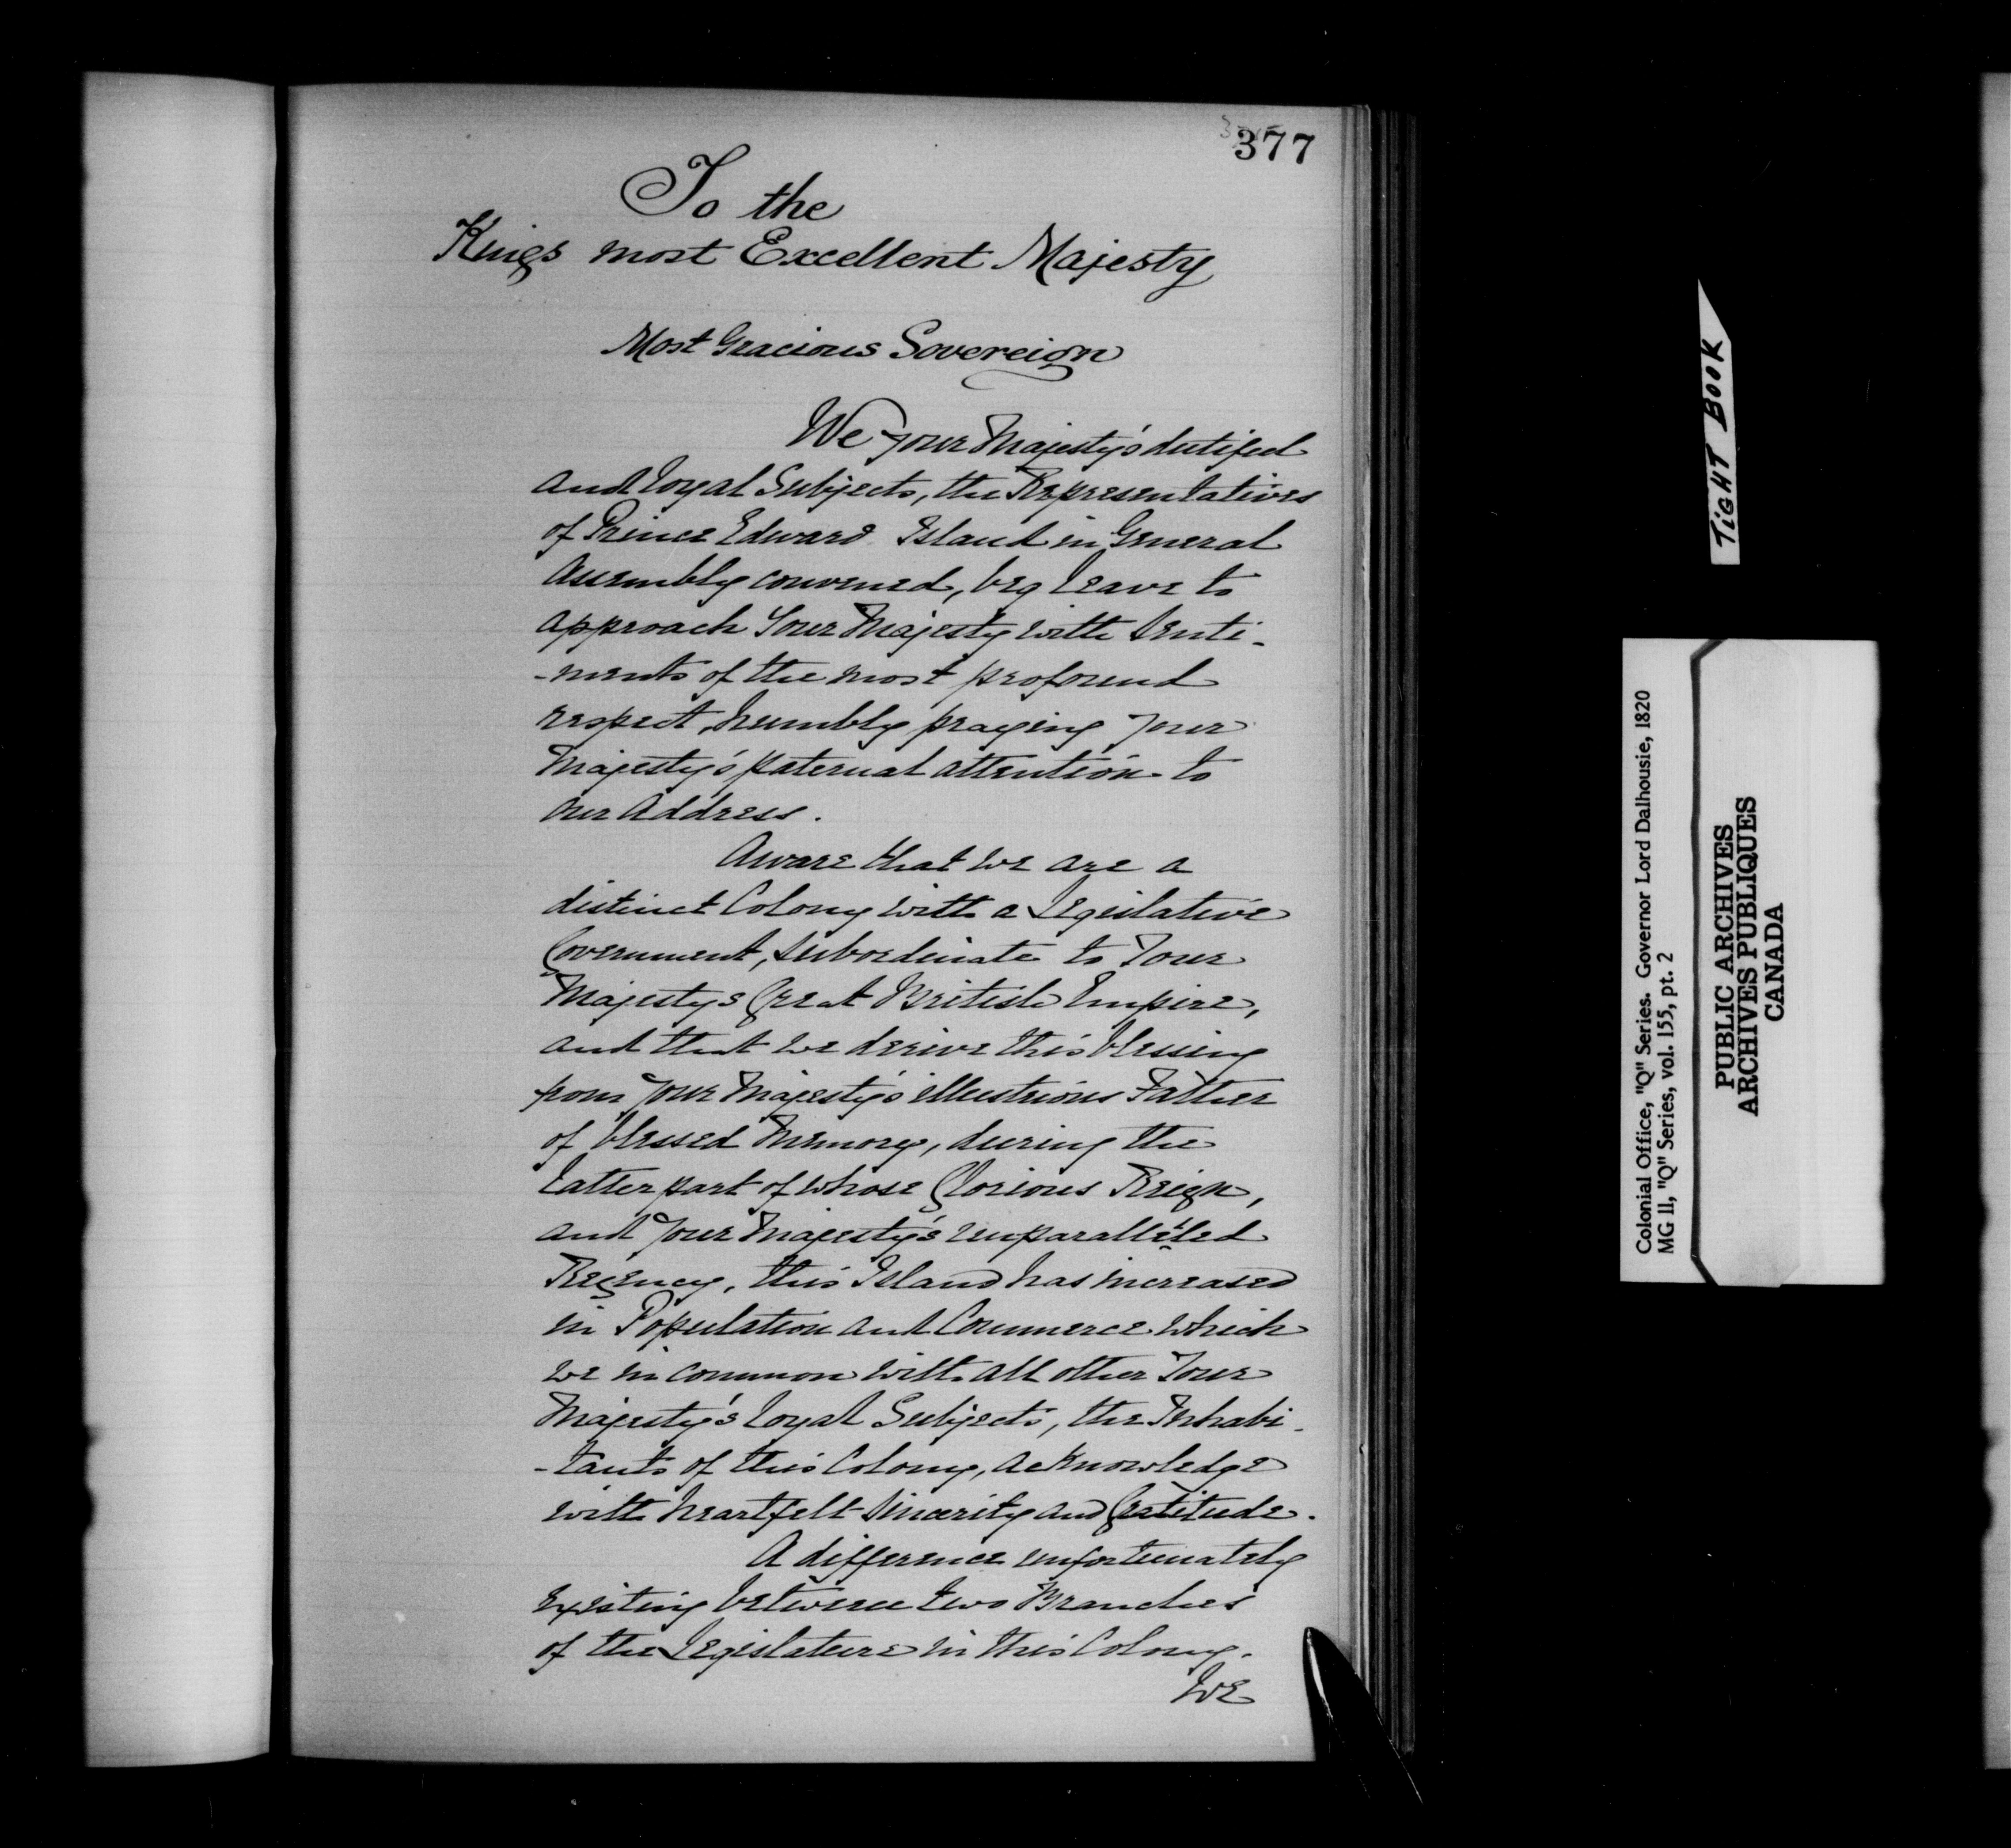 377
To the
Kings most Excellent Majesty
Most Gracious Sovereign
We your Majesty's dutiful
and loyal Subjects, the Representatives
of Prince Edward Island in General
Assembly convened, beg leave to
approach Your Majesty with Senti-
-ments of the most profound
respect, humbly praying Your
Majesty's paternal attention to
our Address.
Aware that we are a
distinct Colony with a Legislative
Government, subordinate to Your
Majestys Great British Empire,
and that we derive this blessing
from your Majesty's illustrious Father
of blessed Memory, during the
latter part of whose Glorious Reign,
and your Majesty's unparalleled
Regency, this Island has increased
in Population and Commerce which
we in common with all other Your
Majesty's loyal Subjects, the Inhabi-
-tants of this Colony, acknowledge
with heartfelt Sincerity and Gratitude.
A difference unfortunately
existing between two Branches
of the Legislature in this Colony.
We
TiGHT BOOK
Colonial Office, "Q" Series. Governor Lord Dalhousie, 1820
MG 11, "Q" Series, vol. 155, pt. 2
PUBLIC ARCHIVES
ARCHIVES PUBLIQUES
CANADA